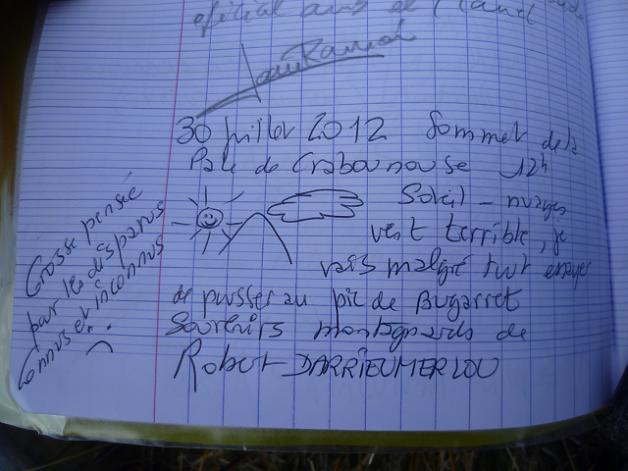 30 juillet 2012 Sommet de la
Pale de Crabounouse 12h
Soleil - nuages
vent terrible, je
vais malgré tout essayer
de pusser au pic de Bugarret
Souvenirs montagnards de
Robert DARRIEUMERLOU
Grosse pensée
par les disparus
Connus et inconnus